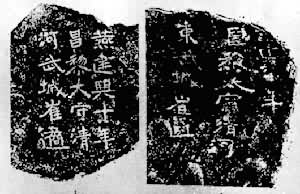 興十年
昌黎太守清河
東武城崔遹
燕建興十年
昌黎太守清
河武城崔遹